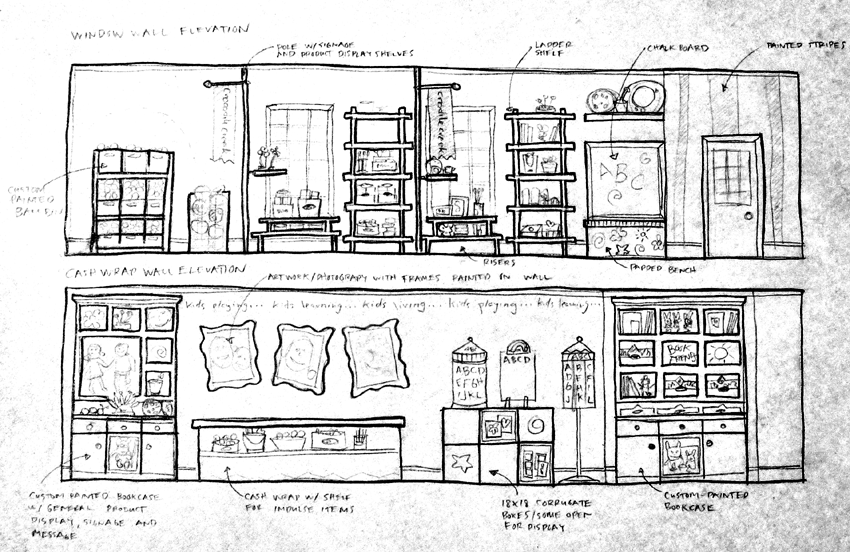 WINDOW WALL ELEVATION
POLE W/SIGNAGE
AND PRODUCT DISPLAY SHELVES
LADDER
SHELF
CHALKBOARD
PAINTED STRIPES
crocodile creek
crocodile creek
ABC
CUSTOM
PAINTED
RISERS
PADDED BENCH
CASH WRAP WALL ELEVATION
ARTWORK/PHOTOGRAPY WITH FRAMES PAINTED ON WALL
kids playing... kids learning... kids living... kids playing... kids learning...
ABCD
EFGH
IJKL
ABCD
BOOK
CUSTOM PAINTED BOOKCASE
W/ GENERAL PRODUCT
DISPLAY, SIGNAGE AND
MESSAGE
CASH WRAP W/ SHELF
FOR IMPULSE ITEMS
18X18 CORRUGATE
BOXES/SOME OPEN
FOR DISPLAY
CUSTOM-PAINTED
BOOKCASE